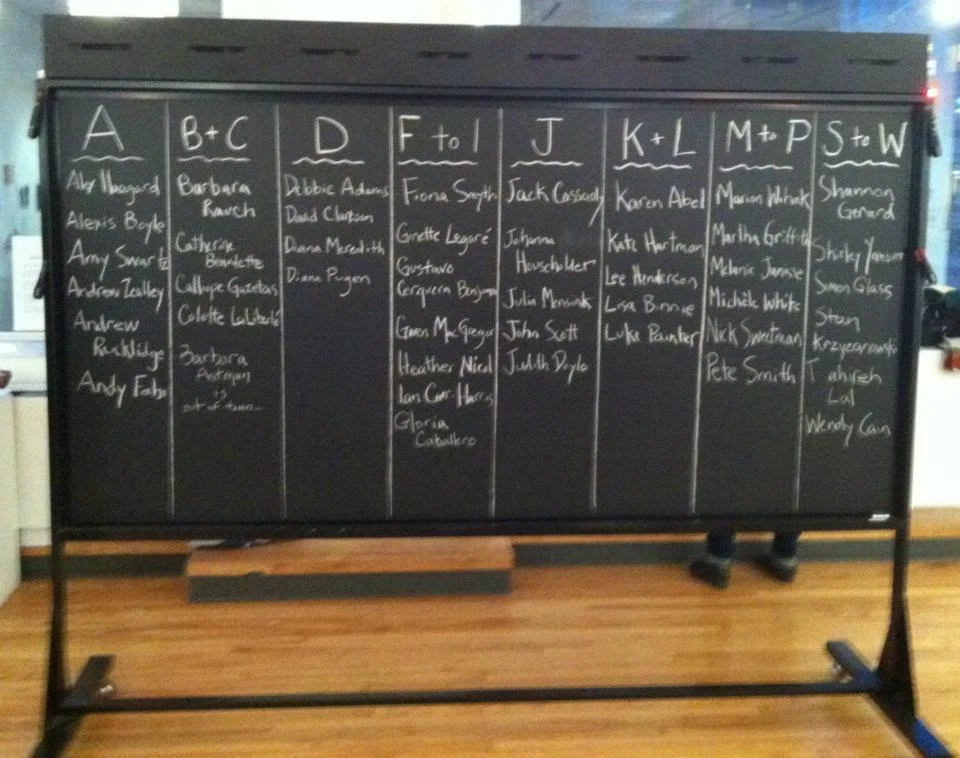 A
Alexis Boyle
Amy Swartz
Andrew
Rucklidge
Andy Fabo
B+C
Barbara
Rauch
Catherine
Calliope Gazetas
Colette
Barbara
Astman
is
out of town...
D
Debbie Adams
David Clarkson
Diana Meredith
Diana
F to I
Fiona Smyth
Ginette Legaré
Gustavo
Cerquera Benjumea
Gwen MacGregor
Heather Nicol
Ian Carr-Harris
Gloria
Caballero
J
Jack
Johanna
Householder
Julia
John Scott
Judith Doyle
K+L
Karen Abel
Kate Hartman
Lee Henderson
Lisa Binnie
Luke Painter
M to P
Marion
Martha Griffith
Melanie
Michèle White
Nick Sweetman
Pete Smith
S to W
Shannon
Gerard
Shirley
Simon Glass
Stan
Krzyzanowski
Tahireh
Lal
Wendy Cain